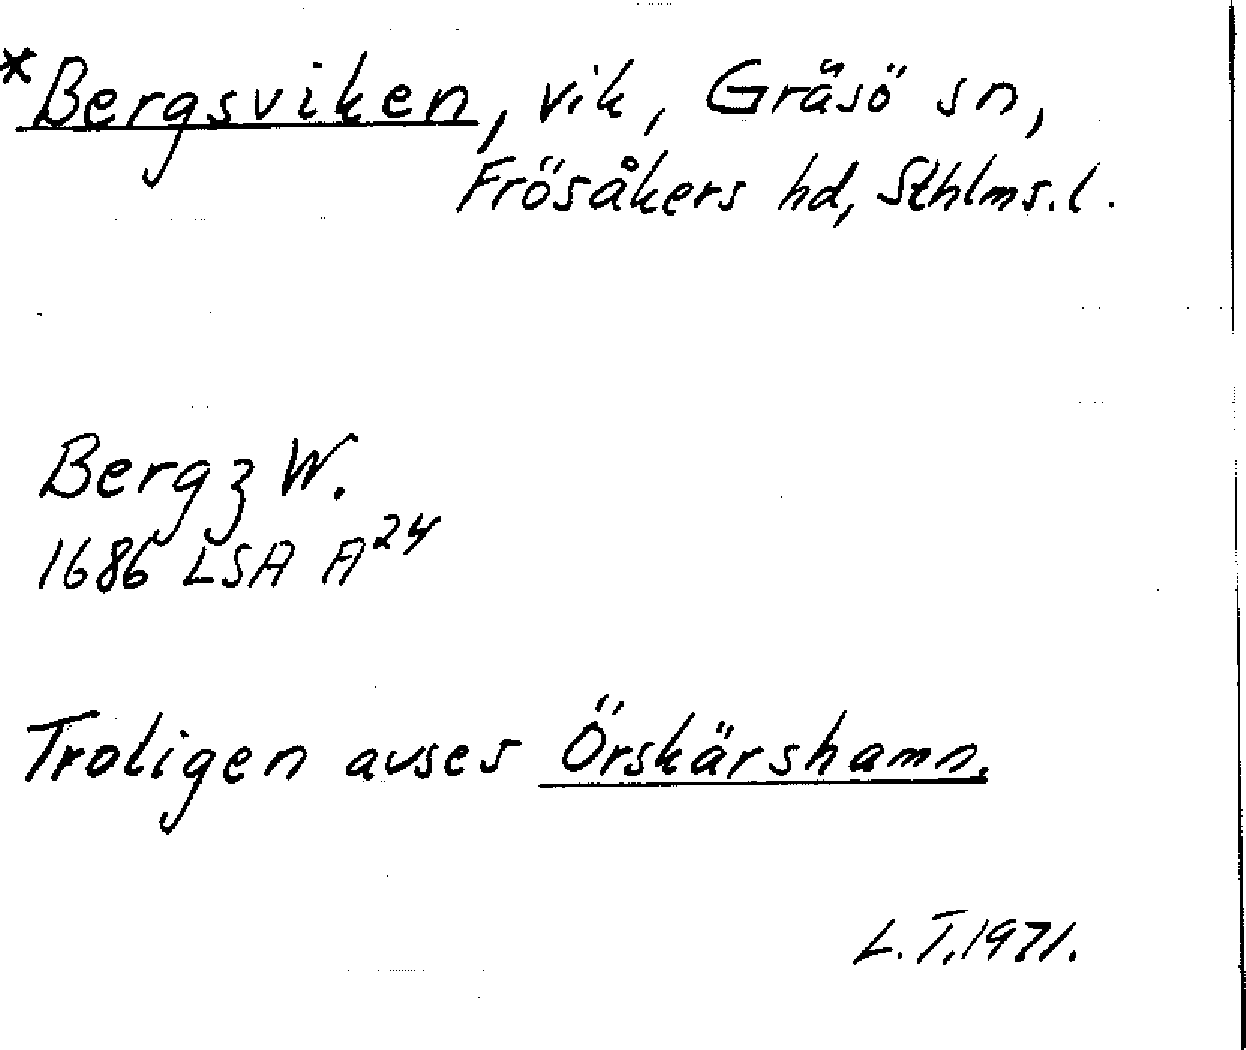 *Bergsviken, vik, Gräsö sn,
Frösåkers hd, Sthlms. l.
Bergz W.
1686 LSA A24
Troligen avses Örskärshamn.
L. T. 1971.